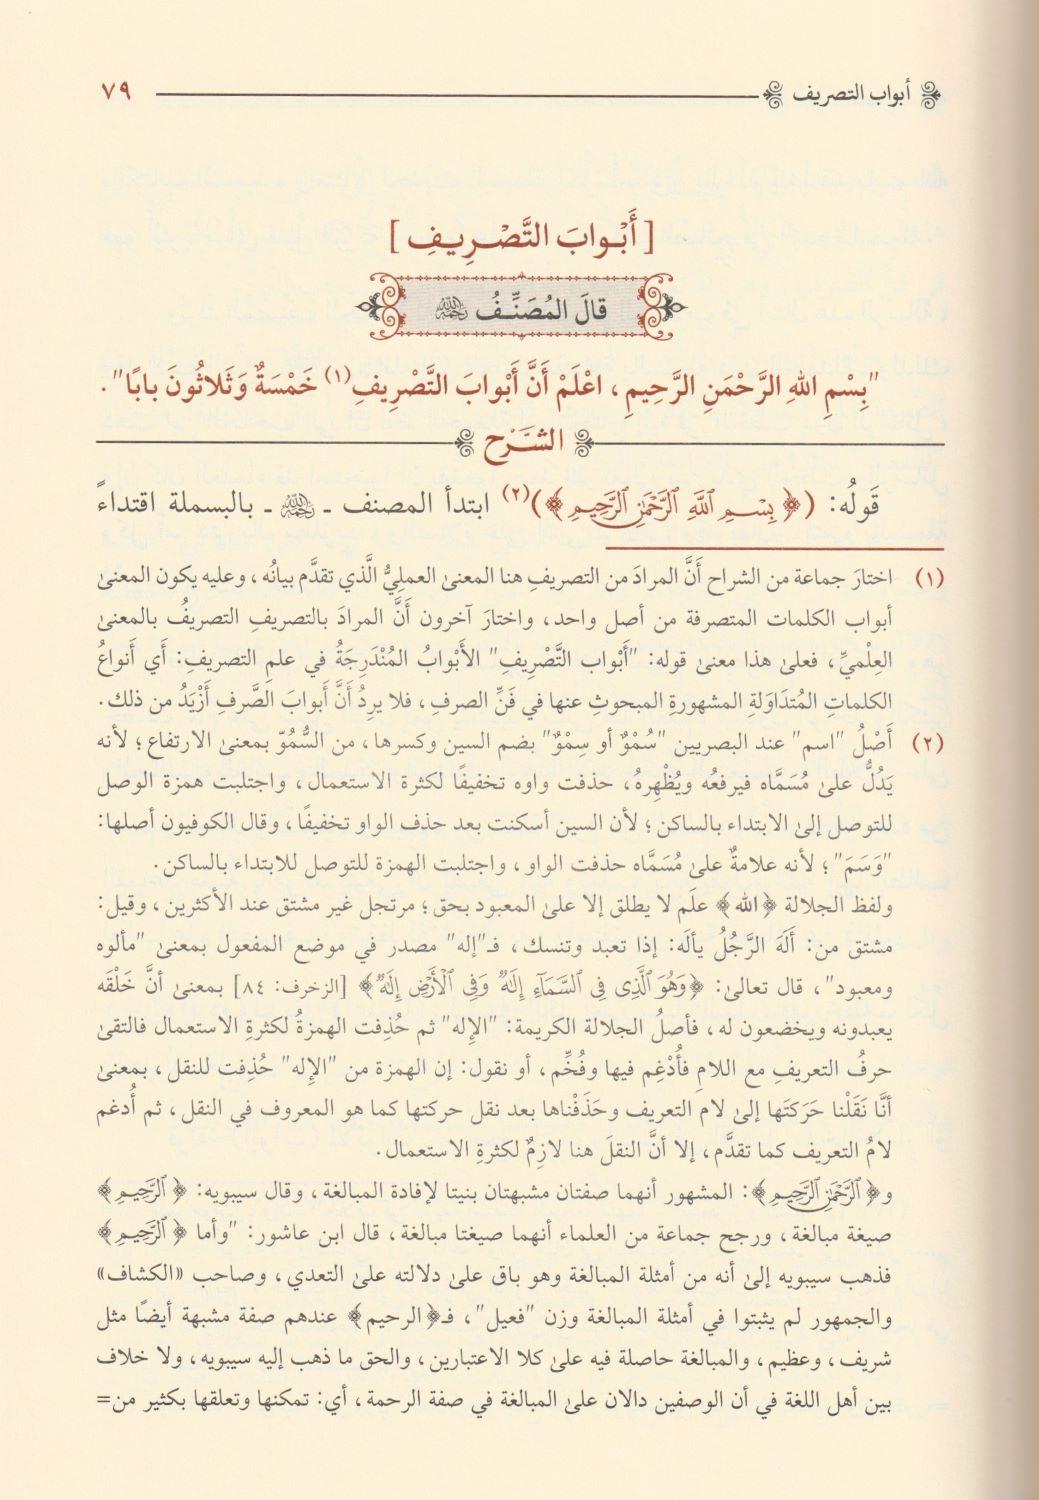 أبواب التصريف ٧٩
[أَبْوابَ التَّصْرِيفِ]
قالَ المُصَنِّفُ ﵀
"بِسْمِ اللهِ الرَّحْمَنِ الرَّحِيمِ، اعْلَمْ أَنَّ أَبْوابَ التَّصْرِيفِ(١) خَمْسَةٌ وَثَلاثُونَ بابًا".
الشَّرْح
قَولُه: (﴿بِسْمِ ٱللَّهِ ٱلرَّحْمَٰنِ ٱلرَّحِيمِ﴾)(٢) ابتدأ المصنف ـ ﵀ ـ بالبسملة اقتداءً
(١) اختارَ جماعة من الشراح أَنَّ المرادَ من التصريفِ هنا المعنىٰ العملِيُّ الَّذي تقدَّم بيانُه، وعليه يكون المعنىٰ
أبواب الكلمات المتصرفة من أصل واحد، واختارَ آخرون أَنَّ المرادَ بالتصريفِ التصريفُ بالمعنىٰ
العِلْميِّ، فعلىٰ هذا معنىٰ قوله: "أَبْواب التَّصْرِيفِ" الأَبْوابُ المُنْدَرِجَةُ في علمِ التصريفِ: أَي أَنواعُ
الكلماتِ المُتدَاوَلةِ المشهورةِ المبحوثِ عنها في فَنِّ الصرفِ، فلا يرِدُ أَنَّ أَبوابَ الصَّرفِ أَزْيَدُ من ذلك.
(٢) أَصْلُ "اسم" عند البصريين "سُمْوٌ أو سِمْوٌ" بضم السين وكسرها، من السُّمُوّ بمعنىٰ الارتفاع؛ لأنه
يَدُلُّ علىٰ مُسَمَّاه فيرفعُه ويُظْهِرهُ، حذفت واوه تخفيفًا لكثرة الاستعمال، واجتلبت همزة الوصل
للتوصل إلىٰ الابتداء بالساكن؛ لأن السين أسكنت بعد حذف الواو تخفيفًا، وقال الكوفيون أصلها:
"وَسَمَ"؛ لأنه علامةٌ علىٰ مُسَمَّاه حذفت الواو، واجتلبت الهمزة للتوصل للابتداء بالساكن.
ولفظ الجلالة ﴿الله﴾ علَم لا يطلق إلا علىٰ المعبود بحق؛ مرتجل غير مشتق عند الأكثرين، وقيل:
مشتق من: أَلَهَ الرَّجُلُ يألَه: إذا تعبد وتنسك، فـ"إله" مصدر في موضع المفعول بمعنىٰ "مألوه
ومعبود"، قال تعالىٰ: ﴿وَهُوَ ٱلَّذِى فِى ٱلسَّمَآءِ إِلَٰهٌ وَفِى ٱلْأَرْضِ إِلَٰهٌ﴾ [الزخرف: ٨٤] بمعنىٰ أنَّ خَلْقَه
يعبدونه ويخضعون له، فأصلُ الجلالة الكريمة: "الإله" ثم حُذِفت الهمزةُ لكثرةِ الاستعمال فالتقىٰ
حرفُ التعريفِ مع اللامِ فأُدْغِم فيها وفُخِّم، أو نقول: إن الهمزة من "الإله" حُذِفت للنقل، بمعنىٰ
أنَّا نَقَلْنا حَرَكتَها إلىٰ لام التعريف وحَذَفْناها بعد نقل حركتها كما هو المعروف في النقل، ثم أُدغم
لامُ التعريف كما تقدَّم، إلا أنَّ النقلَ هنا لازِمٌ لكثرةِ الاستعمال.
و﴿ٱلرَّحْمَٰنِ ٱلرَّحِيمِ﴾: المشهور أنهما صفتان مشبهتان بنيتا لإفادة المبالغة، وقال سيبويه: ﴿ٱلرَّحِيمِ﴾
صيغة مبالغة، ورجح جماعة من العلماء أنهما صيغتا مبالغة، قال ابن عاشور: "وأما ﴿ٱلرَّحِيمِ﴾
فذهب سيبويه إلىٰ أنه من أمثلة المبالغة وهو باق علىٰ دلالته علىٰ التعدي، وصاحب «الكشاف»
والجمهور لم يثبتوا في أمثلة المبالغة وزن "فعيل"، فـ﴿الرحيم﴾ عندهم صفة مشبهة أيضًا مثل
شريف، وعظيم، والمبالغة حاصلة فيه علىٰ كلا الاعتبارين، والحق ما ذهب إليه سيبويه، ولا خلاف
بين أهل اللغة في أن الوصفين دالان علىٰ المبالغة في صفة الرحمة، أي: تمكنها وتعلقها بكثير من=